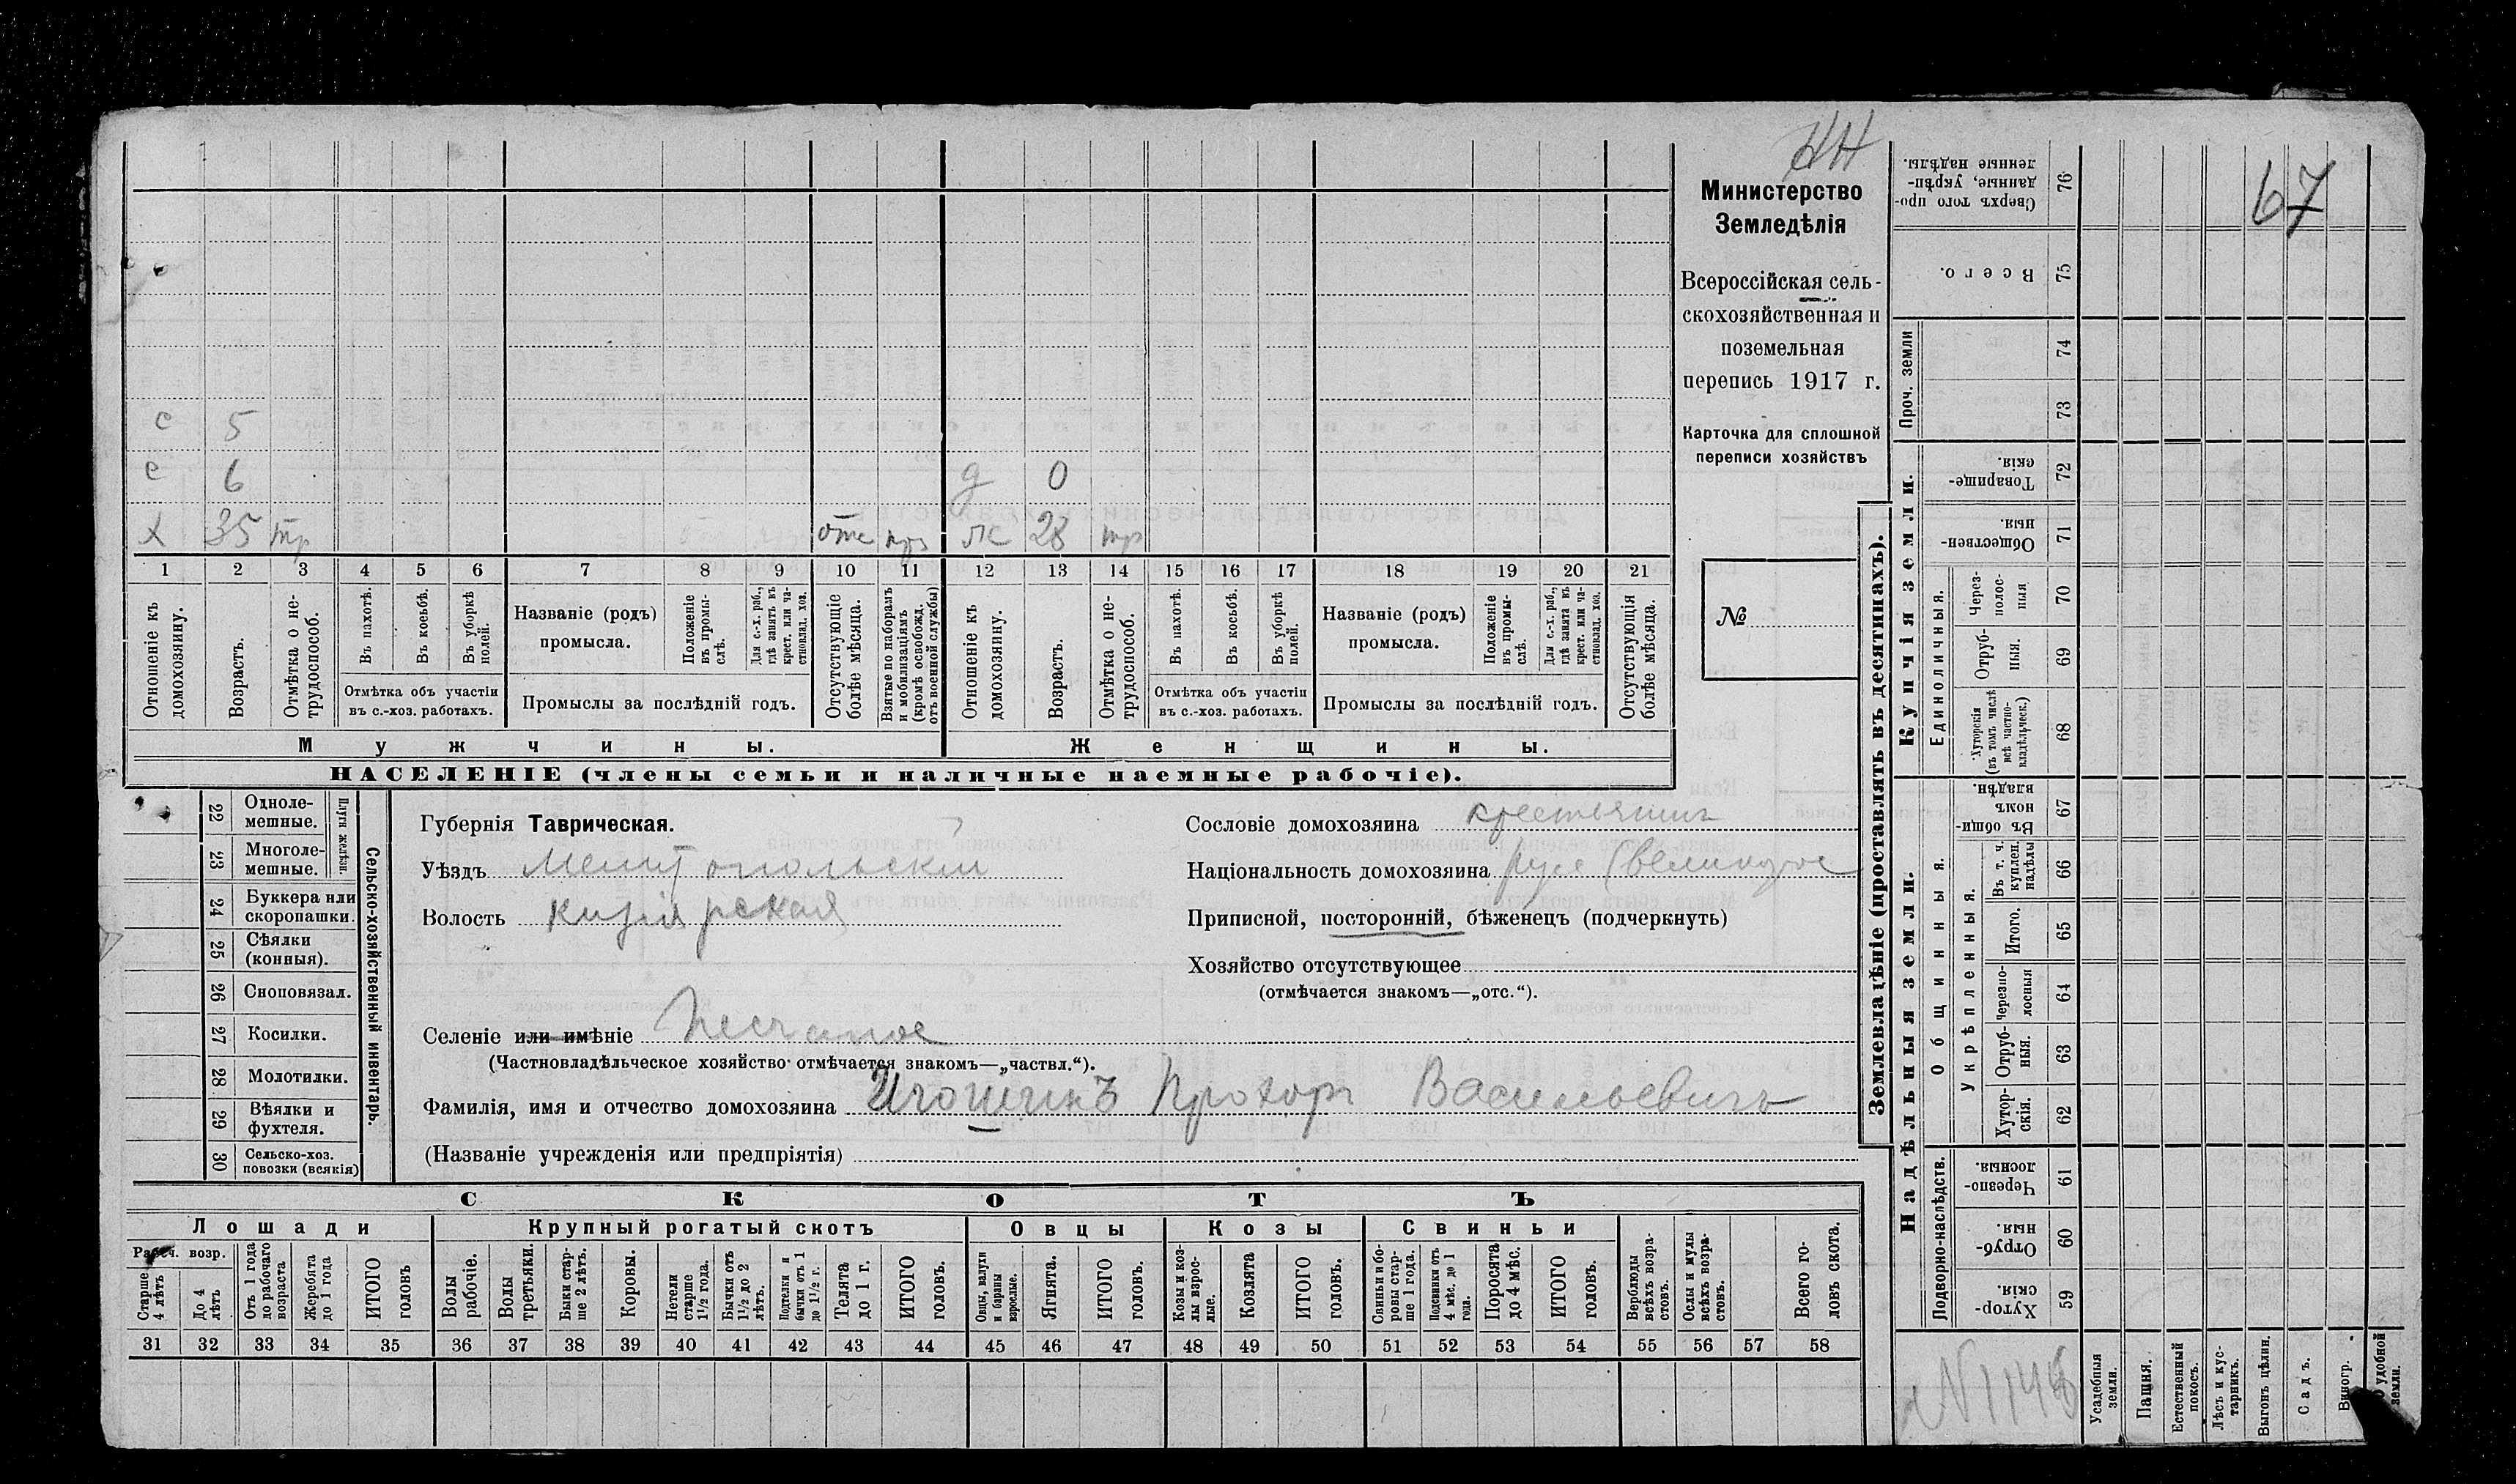 НН
67
Министерство
Земледѣлія
Всероссійская сель-
скохозяйственная и
поземельная
перепись 1917 г.
Карточка для сплошной
переписи хозяйствъ
№
с 5
с 6 д 0
х 35 тр отс ж 28 тр
1 2 3 4 5 6 7 8 9 10 11 12 13 14 15 16 17 18 19 20 21
Отношеніе къ домохозяину.
Возрастъ.
Отмѣтка о не-трудоспособ.
Въ пахотѣ.
Въ косьбѣ.
Въ уборкѣ полей.
Отмѣтка объ участіи
въ с.-хоз. работахъ.
Названіе (родъ)
промысла.
Положеніе въ промы-слѣ.
Для с.-х. раб., гдѣ занятъ въ крест. или ча-стновлад. хоз.
Промыслы за послѣдній годъ.
Отсутствующіе болѣе мѣсяца.
Взятые по наборамъ и мобилизаціямъ (кромѣ освобожд. отъ военной службы)
Отношеніе къ домохозяину.
Возрастъ.
Отмѣтка о не-трудоспособ.
Въ пахотѣ.
Въ косьбѣ.
Въ уборкѣ полей.
Отмѣтка объ участіи
въ с.-хоз. работахъ.
Названіе (родъ)
промысла.
Положеніе въ промы-слѣ.
Для с.-х. раб., гдѣ занята въ крест. или ча-стновлад. хоз.
Промыслы за послѣдній годъ.
Отсутствующія болѣе мѣсяца.
Мужчины. Женщины.
НАСЕЛЕНІЕ (члены семьи и наличные наемные рабочіе).
22 Одноле-мешные.
23 Многоле-мешные.
Плуги желѣзн.
24 Буккера или скоропашки.
25 Сѣялки (конныя).
26 Сноповязал.
27 Косилки.
28 Молотилки.
29 Вѣялки и фухтеля.
30 Сельско-хоз. повозки (всякія)
Сельско-хозяйственный инвентарь.
Губернія Таврическая.
Уѣздъ Мелитопольскій
Волость Кизіярская
Сословіе домохозяина крестьянинъ
Національность домохозяина русс (великорос
Приписной, посторонній, бѣженецъ (подчеркнуть)
Хозяйство отсутствующее
(отмѣчается знакомъ—„отс.“).
Селеніе или имѣніе Песчаное
(Частновладѣльческое хозяйство отмѣчается знакомъ—„частвл.“).
Фамилія, имя и отчество домохозяина Игошинъ Прохоръ Васильевичъ
(Названіе учрежденія или предпріятія)
СКОТЪ
Лошади Крупный рогатый скотъ Овцы Козы Свиньи
Рабоч. возр.
Старше 4 лѣтъ
До 4 лѣтъ
Отъ 1 года до рабочаго возраста
Жеребята до 1 года
ИТОГО головъ
Волы рабочіе.
Волы третьяки.
Быки стар-ше 2 лѣтъ.
Коровы.
Нетели старше 1½ года.
Бычки отъ 1½ до 2 лѣтъ.
Подтелки и бычки отъ 1 до 1½ г.
Телята до 1 г.
ИТОГО головъ.
Овцы, валухи и бараны взрослые.
Ягнята.
ИТОГО головъ.
Козы и коз-лы взрос-лые.
Козлята
ИТОГО головъ.
Свиньи и бо-ровы стар-ше 1 года.
Подсвинки отъ 4 мѣс. до 1 года.
Поросята до 4 мѣс.
ИТОГО головъ.
Верблюды всѣхъ возра-стовъ.
Ослы и мулы всѣхъ возра-стовъ.
Всего го-ловъ скота.
31 32 33 34 35 36 37 38 39 40 41 42 43 44 45 46 47 48 49 50 51 52 53 54 55 56 57 58
Землевладѣніе (проставлять въ десятинахъ).
Купчія земли.
Надѣльныя земли.
Сверхъ того про-данные, укрѣп-ленные надѣлы. 76
Всего. 75
Проч. земли 74
73
Товарище-скія 72
Обществен-ныя. 71
Единоличныя.
Через-полос-ныя 70
Отруб-ныя. 69
Хуторскія (въ томъ числѣ всѣ частно-владѣльческ.) 68
Общинныя.
Въ общи-номъ владѣн. 67
Укрѣпленныя.
Въ т. ч. куплен. надѣлы 66
Итого. 65
Черезпо-лосныя 64
Отруб-ныя. 63
Хутор-скія. 62
Подворно-наслѣдств.
Черезпо-лосныя. 61
Отруб-ныя. 60
Хутор-скія. 59
Усадебныя земли.
Пашня.
Естественный покосъ.
Лѣсъ и кус-тарникъ.
Выгонъ цѣлин.
Садъ.
Виногр.
удобной земли.